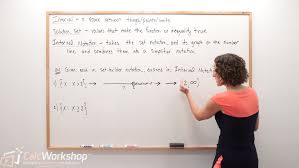 Interval = a space between things/points/units
Solution Set = values that make the function or inequality true
Interval Notation = takes the set notation and its graph on the number
line, and combines them as a simplified notation.
Given each in set-builder notation, express in Interval Notation
1) {x : x > 2} → 2 → (2, ∞)
2) {x : x ≥ 2}
CalcWorkshop